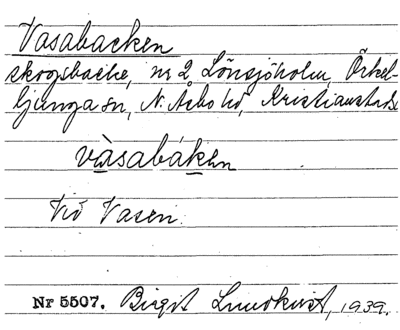 Vasabacken
skogsbacke, nr 2 Lönsjöholm, Örkel-
ljunga sn, N. Åsbo hd, Kristianstads
vàsabáken
Vid Vasen.
Nr 5507. Birgit Lundkvist, 1939.